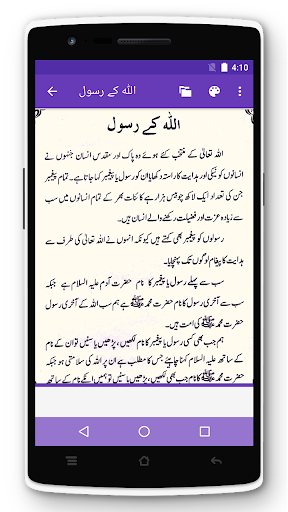 4:10
اللہ کے رسول
اللہ کے رسول
اللہ تعالیٰ کے منتخب کئے ہوئے وہ پاک اور مقدس انسان جنہوں نے
انسانوں کو نیکی اور ہدایت کا راستہ دکھایا ان کو رسول یا پیغمبر کہا جاتا ہے۔ تمام پیغمبر
جن کی تعداد ایک لاکھ چوبیس ہزار ہے کائنات بھر کے تمام انسانوں میں سب
سے زیادہ عزت اور فضیلت رکھنے والے انسان ہیں۔
رسولوں کو پیغمبر بھی کہتے ہیں کیونکہ انہوں نے اللہ تعالیٰ کی طرف سے
ہدایت کا پیغام لوگوں تک پہنچایا۔
سب سے پہلے رسول یا پیغمبر کا نام حضرت آدم علیہ السلام ہے جبکہ
سب سے آخری رسول کا نام حضرت محمد ﷺ ہے ہم سب اللہ کے آخری رسول
حضرت محمد ﷺ کی امت ہیں۔
ہم جب بھی کسی رسول یا پیغمبر کا نام لکھیں، پڑھیں یا سنیں تو ان کے نام
کے ساتھ علیہ السلام کہنا چاہئے جس کا مطلب ہے ان پر اللہ کی سلامتی ہو جبکہ
حضرت محمد ﷺ کا نام جب بھی لکھیں، پڑھیں یا سنیں تو ہمیں انکے نام کے